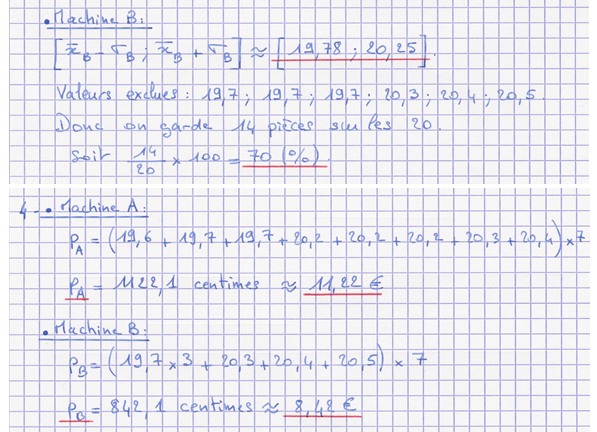 • Machine B:
[x̄_B - σ_B ; x̄_B + σ_B] ≈ [19,78 ; 20,25].
Valeurs exclues : 19,7 ; 19,7 ; 19,7 ; 20,3 ; 20,4 ; 20,5.
Donc on garde 14 pièces sur les 20.
Soit 14/20 × 100 = 70 (%).
4 - • Machine A:
P_A = (19,6 + 19,7 + 19,7 + 20,2 + 20,2 + 20,2 + 20,3 + 20,4) × 7
P_A = 1122,1 centimes ≈ 11,22 €
• Machine B:
P_B = (19,7 × 3 + 20,3 + 20,4 + 20,5) × 7
P_B = 842,1 centimes ≈ 8,42 €